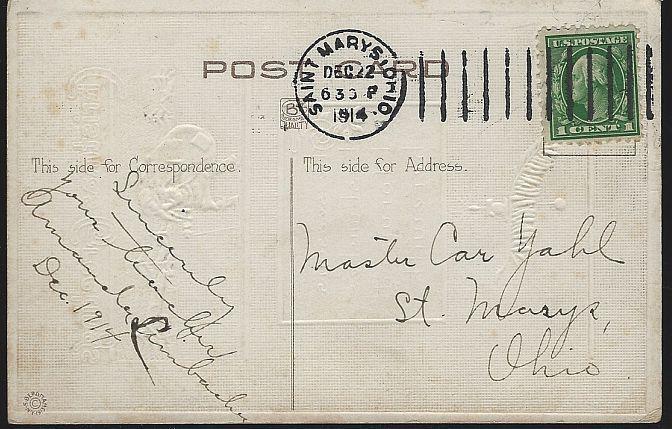 POST CARD
SAINT MARYS, OHIO.
DEC 22
630 P
1914
U.S. POSTAGE
1 CENT 1
B
QUALITY
This side for Correspondence.
This side for Address.
Sincerely
your teacher
Amanda
Dec. 1914
Master Car Yahl
St. Marys,
Ohio